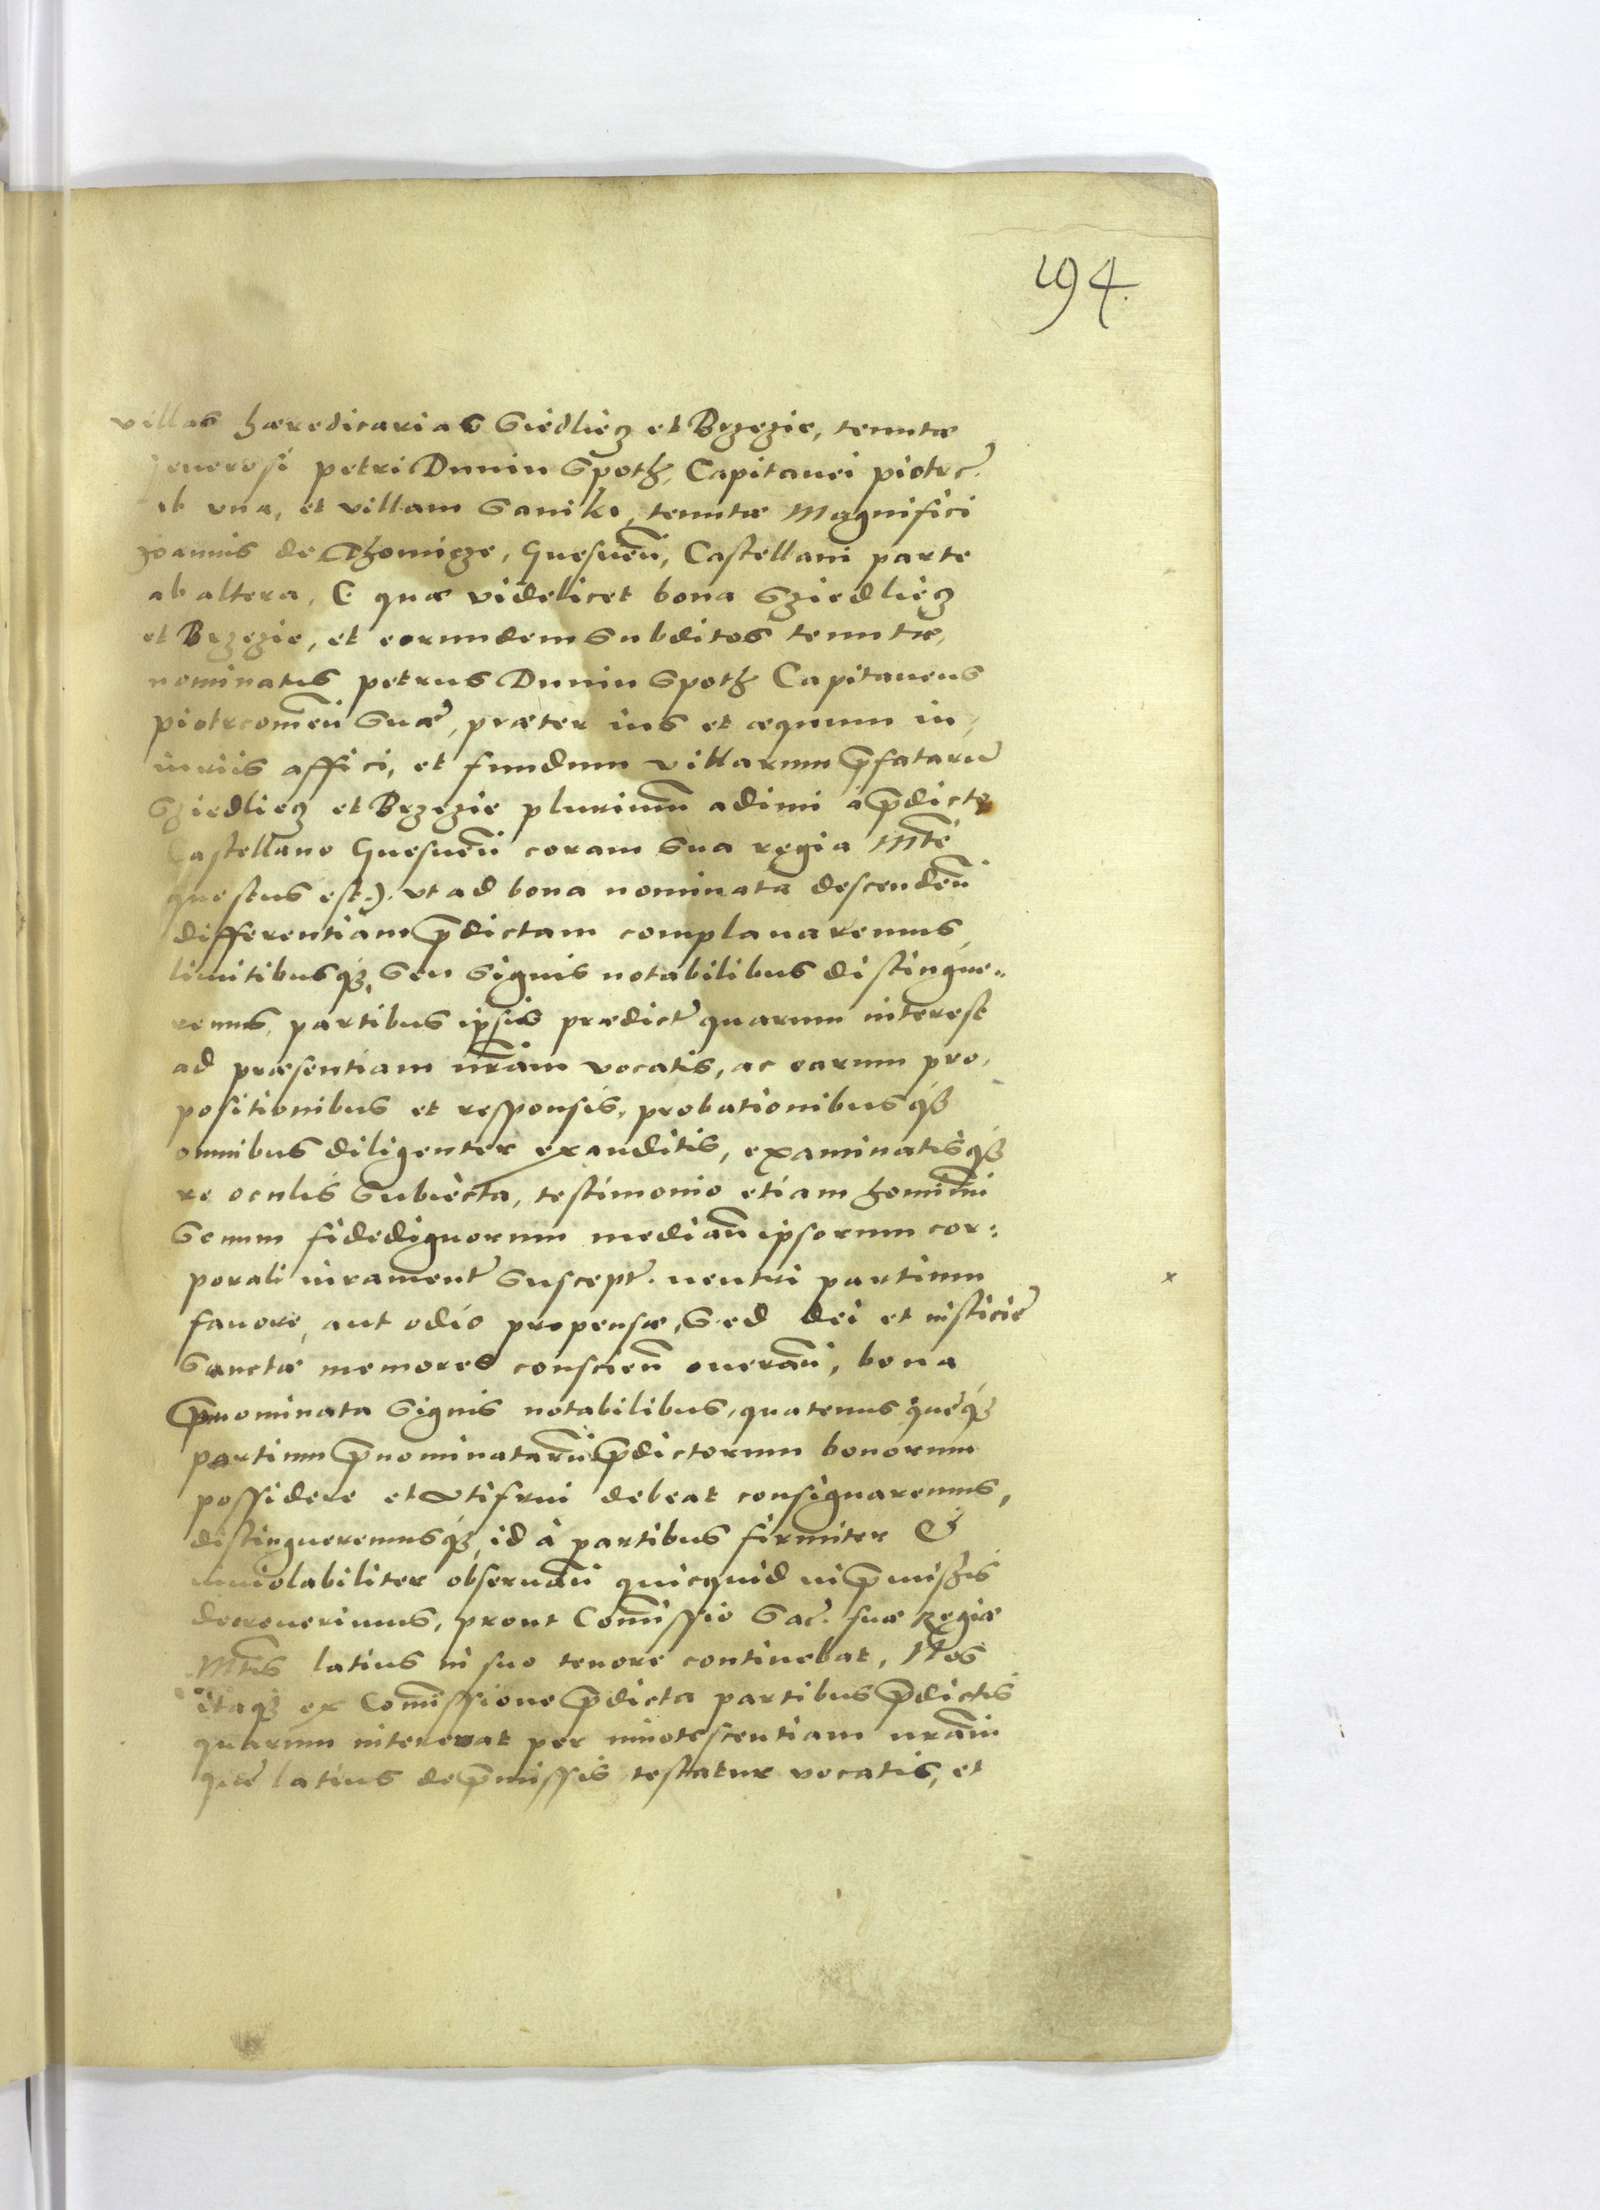 194.
villas hæreditarias Siedliecz et Brzezie, tenutæ
generosi petri Dunin Spoth, Capitanei piotrc.
ab vna, et villam Saniki, tenutæ Magnifici
Joannis de Thomicze, Gnesneñ, Castellani parte
ab altera, ( quæ videlicet bona Sziedliecz
et Brzezie, et eorundem subditos tenutæ,
nominatus petrus Dunin Spoth Capitaneus
piotrcomeñ suæ, præter ius et æquum in,
iuriis affici, et fundum villarum p̃fataru
Sziedliecz et Brzezie plurimũ adimi à p̃dicto
Castellano Gnesneñ coram sua regia Mte
questus est.) vt ad bona nominata descendeñ
differentiam p̃dictam complanaremus,
limitibusq₃, seu signis notabilibus distingue„
remus, partibus ipsis prædict quarum interest
ad præsentiam nr̃am vocatis, ac earum pro,
positionibus et responsis, probationibusq₃
omnibus diligenter exauditis, examinatisq₃
re oculis subiecta, testimonio etiam hominũ
senum fidedignorum mediañ ipsorum cor:
porali iurament suscept. neutri partium
fauore, aut odio propensæ, sed dei et iusticie
sanctæ memores conscieñ onerañ, bona
p̃nominata signis notabilibus, quatenus queq₃
partium p̃nominatarũ p̃dictorum bonorum
possidere et vtifrui debeat consignaremus,
distingueremusq₃, id à partibus firmiter &
inuiolabiliter obseruañ quicquid in p̃missis
decreuerimus, prout Com̃issio sac. suæ Regiæ
Mtis latius in suo tenore continebat, Nos
itaq₃ ex Com̃issione p̃dicta partibus p̃dictis
quarum intererat per innotescentiam nr̃am
que latius de p̃missis testatur vocatis, et
x